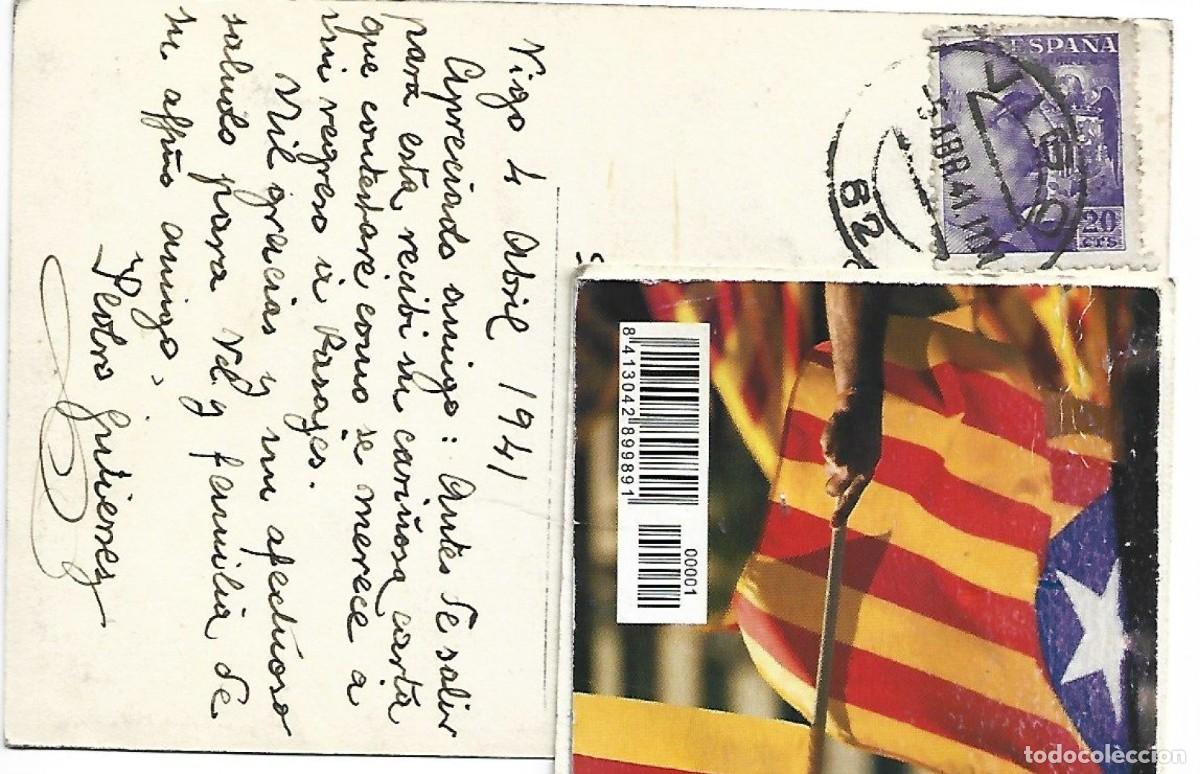 Vigo 4 Abril 1941
Apreciado amigo: Antes de salir
para esta, recibi su cariñosa carta
que contestare como se merece a
mi regreso á Pasajes.
Mil gracias y un afectuoso
saludo para Vd y familia de
su affmo amigo,
Pedro Gutierrez
ESPAÑA
20
CTS
VIGO
5 ABR 41
82
8 413042 899891
00001
todocoleccion